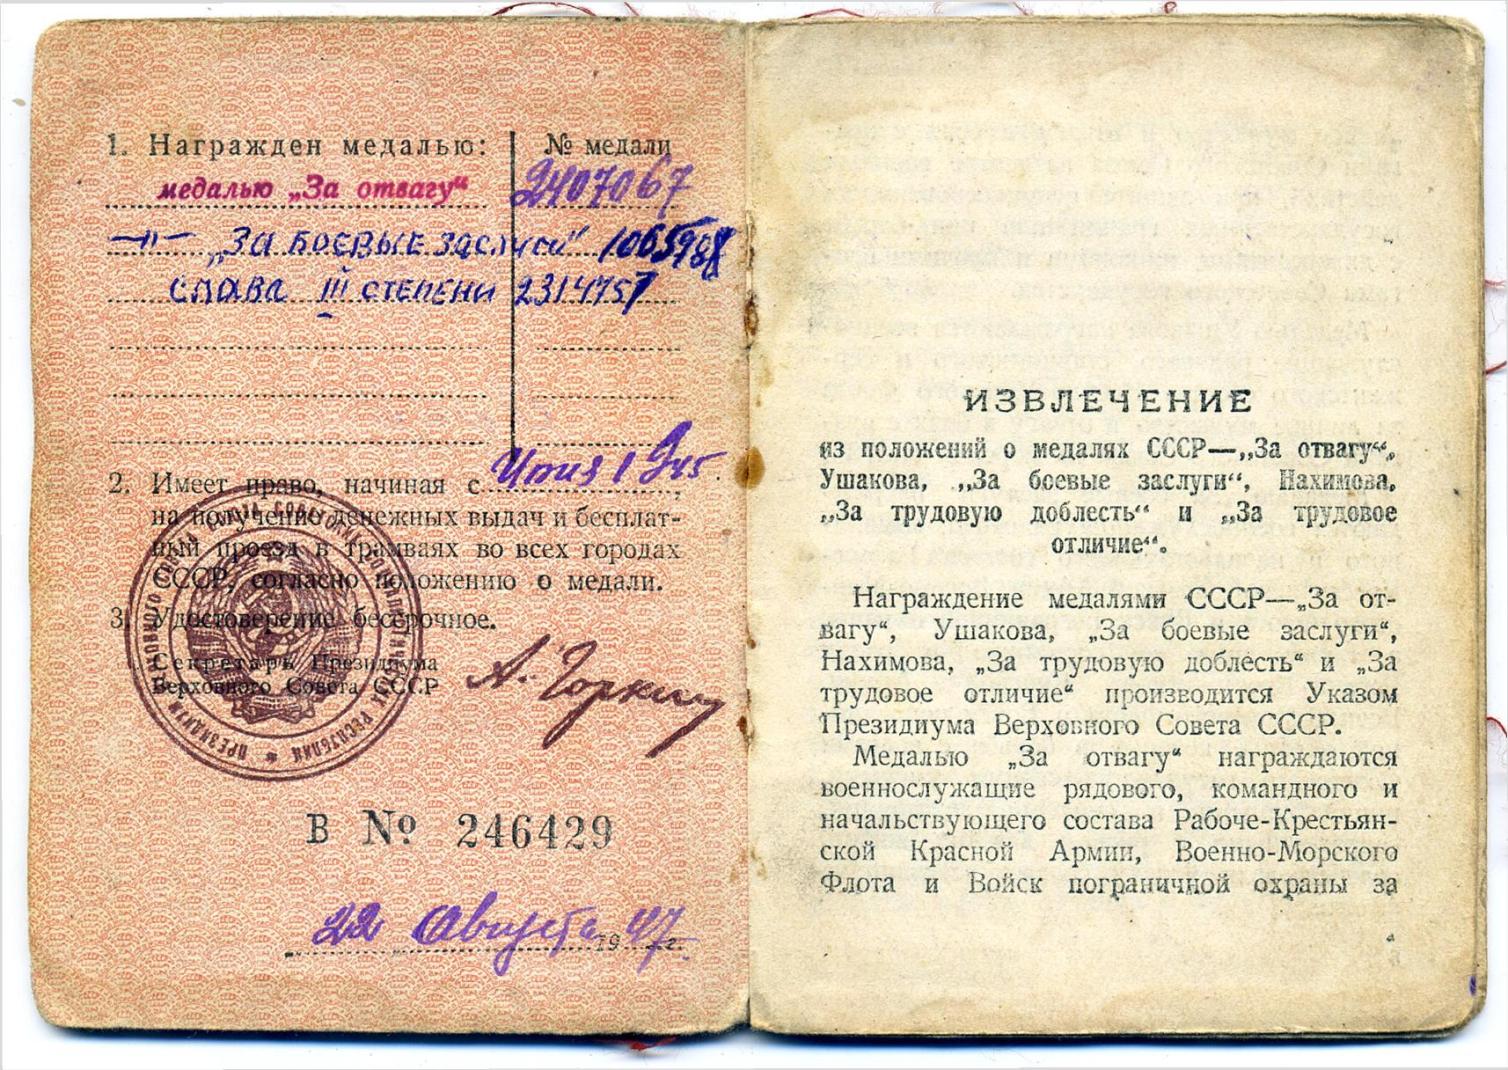 1. Награжден медалью:
№ медали
медалью „За отвагу“
2407067
—"— „ЗА БОЕВЫЕ заслуги" 1065988
СЛАВА III СТЕПЕНИ 2314757
2. Имеет право, начиная с Июня 1945,
на получение денежных выдач и бесплат-
ный проезд в трамваях во всех городах
СССР, согласно положению о медали.
3. Удостоверение бессрочное.
Секретарь Президиума
Верховного Совета СССР
А. Горкин
В № 246429
22 Августа 1947 г.
ИЗВЛЕЧЕНИЕ
из положений о медалях СССР—„За отвагу“,
Ушакова, „За боевые заслуги“, Нахимова,
„За трудовую доблесть“ и „За трудовое
отличие“.
Награждение медалями СССР—„За от-
вагу“, Ушакова, „За боевые заслуги“,
Нахимова, „За трудовую доблесть“ и „За
трудовое отличие“ производится Указом
Президиума Верховного Совета СССР.
Медалью „За отвагу“ награждаются
военнослужащие рядового, командного и
начальствующего состава Рабоче-Крестьян-
ской Красной Армии, Военно-Морского
Флота и Войск пограничной охраны за